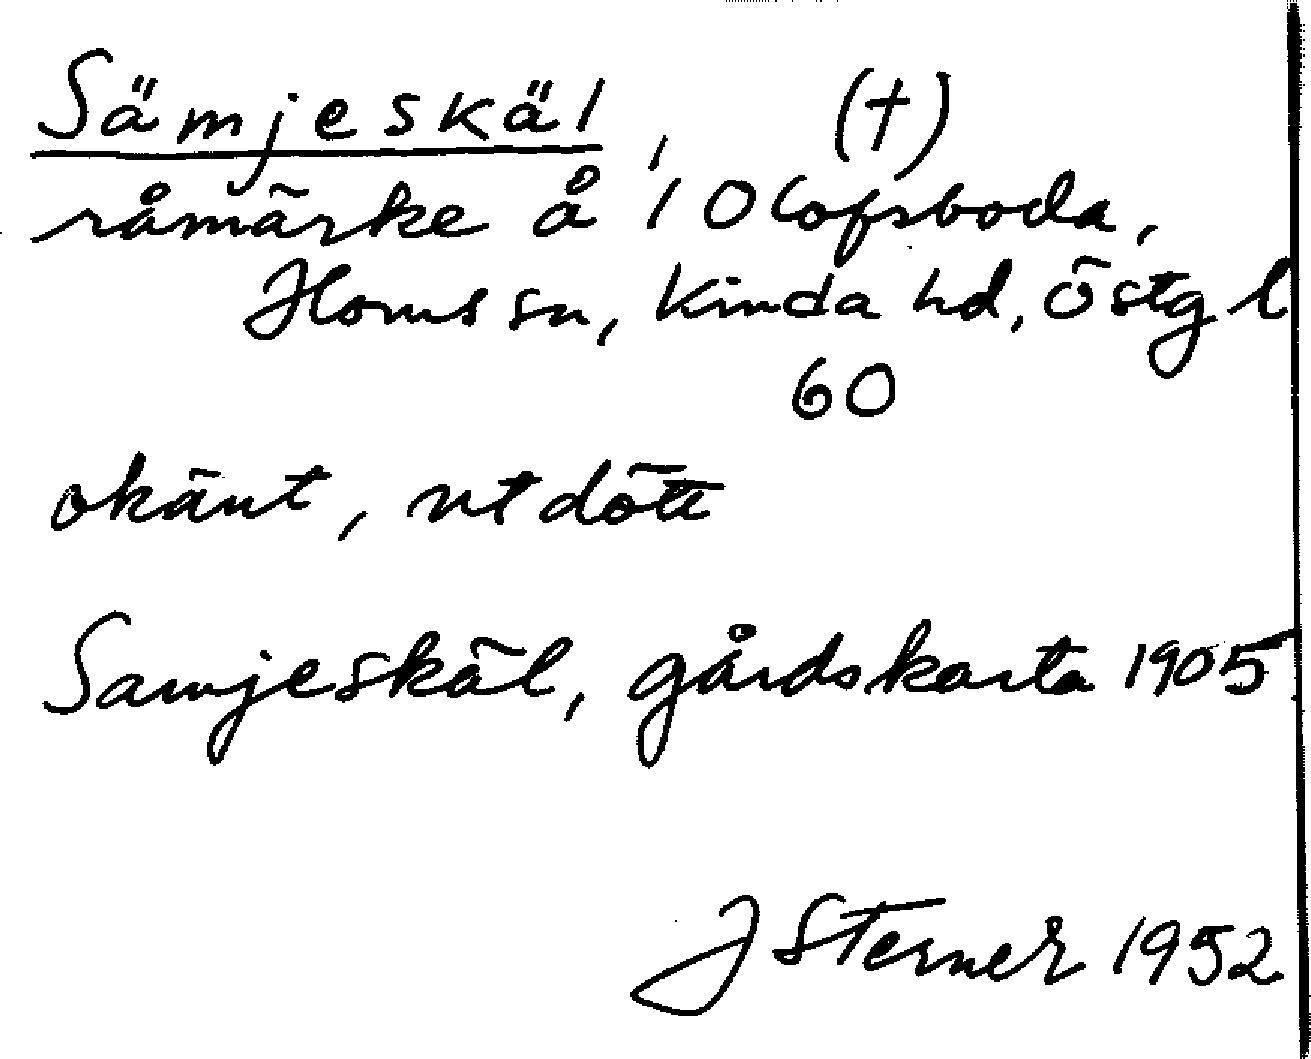 Sämjeskäl, (†)
råmärke å 1 Olofsboda,
Horns sn, Kinda hd, Östg l
60
okänt, utdött
Samjeskäl, gårdskarta 1905
J Sterner 1952